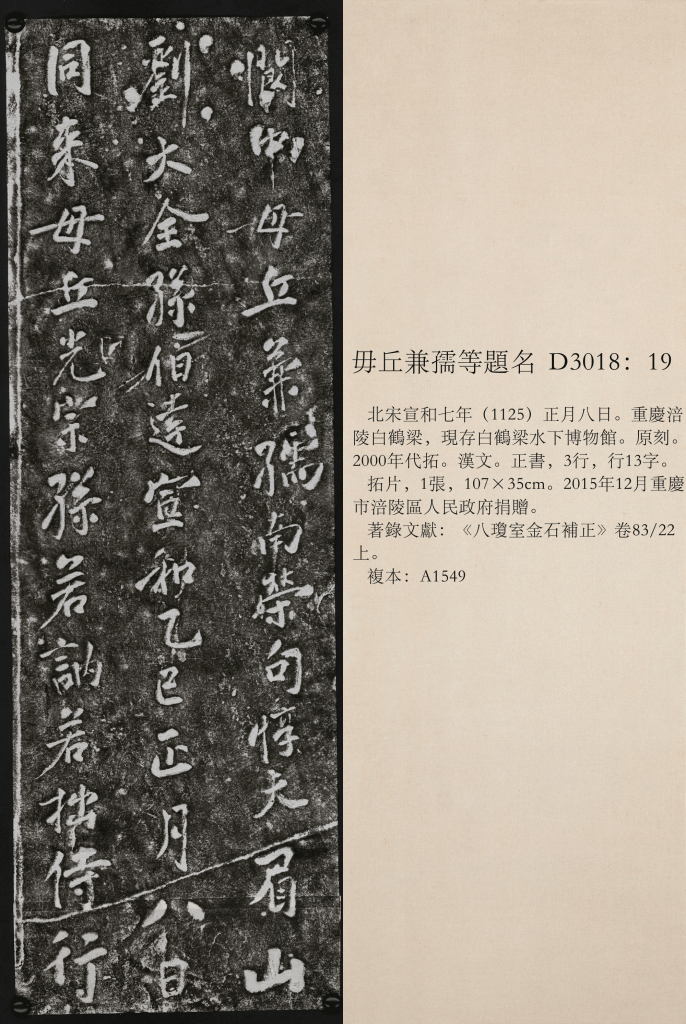 母丘兼孺南榮句惇夫眉山
劉大全孫伯達宣和乙巳正月八日
同來母丘光宗孫若訥若拙侍行
毌丘兼孺等題名 D3018：19
北宋宣和七年（1125）正月八日。重慶涪
陵白鶴梁，現存白鶴梁水下博物館。原刻。
2000年代拓。漢文。正書，3行，行13字。
拓片，1張，107×35cm。2015年12月重慶
市涪陵區人民政府捐贈。
著錄文獻：《八瓊室金石補正》卷83/22
上。
複本：A1549